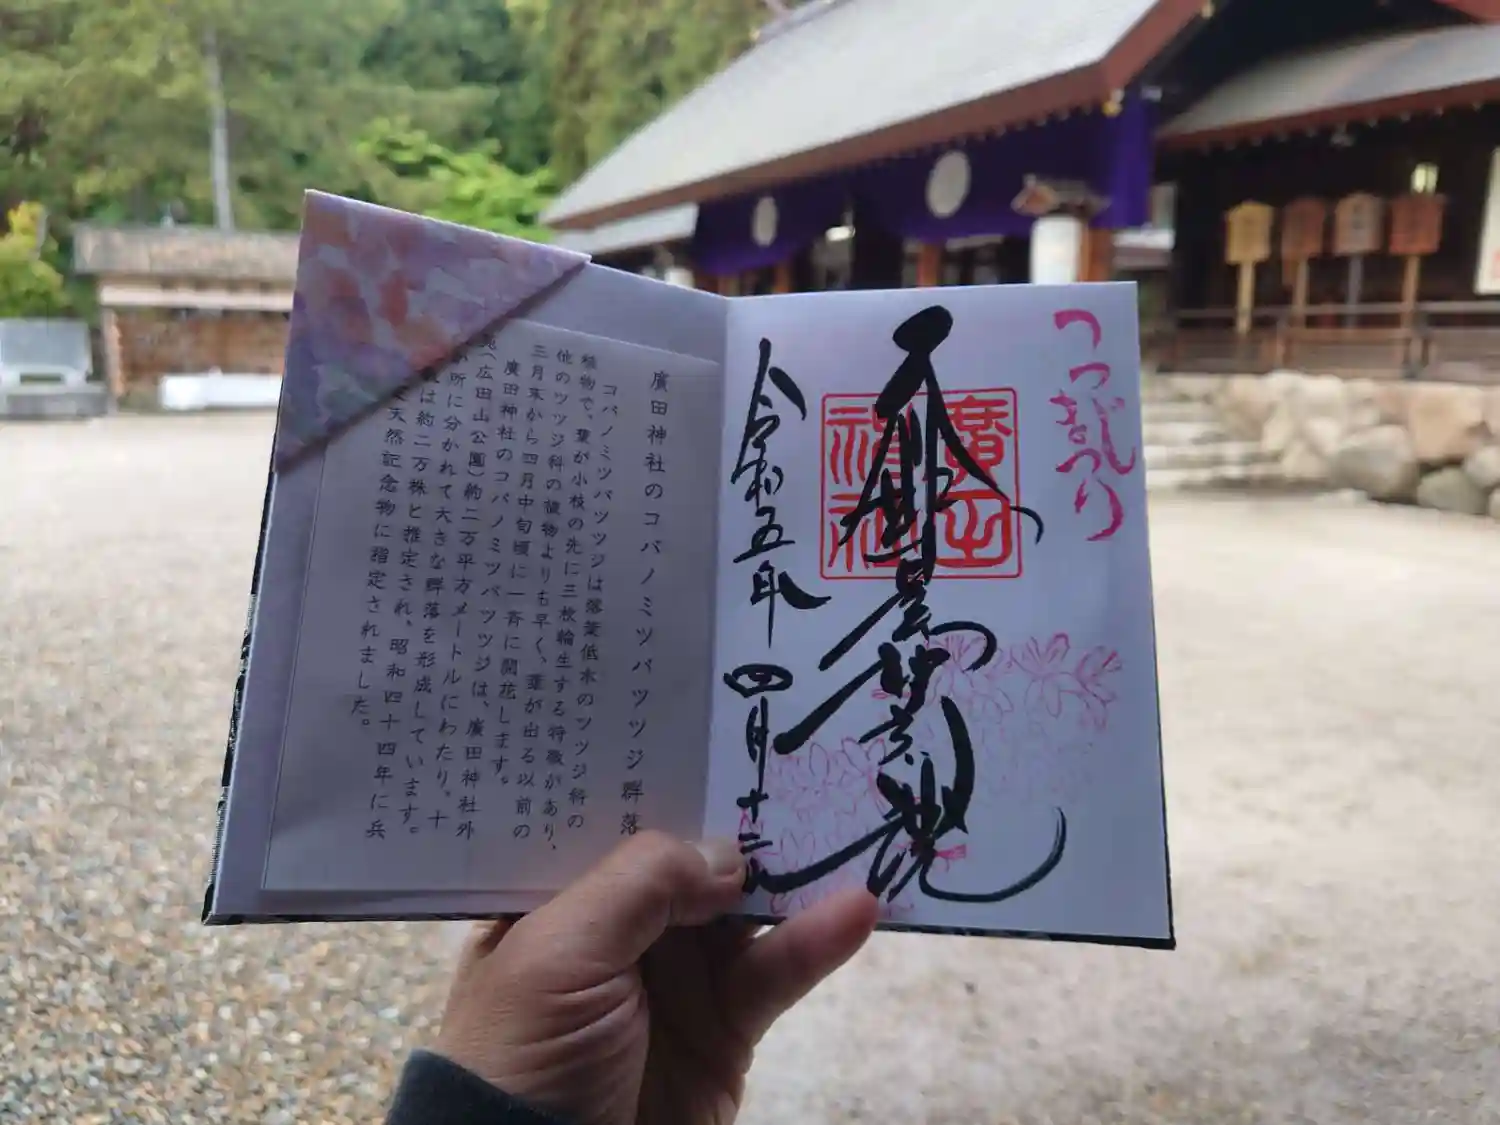 つつじ
まつり
廣田
神社
令和五年四月十
廣田神社のコバノミツバツツジ群落
コバノミツバツツジは落葉低木のツツジ科の
植物で、葉が小枝の先に三枚輪生する特徴があり、
他のツツジ科の植物よりも早く、葉が出る以前の
三月末から四月中旬頃に一斉に開花します。
廣田神社のコバノミツバツツジは、廣田神社外
苑(広田山公園)約二万平方メートルにわたり、十
所に分かれて大きな群落を形成しています。
は約二万株と推定され、昭和四十四年に兵
天然記念物に指定されました。